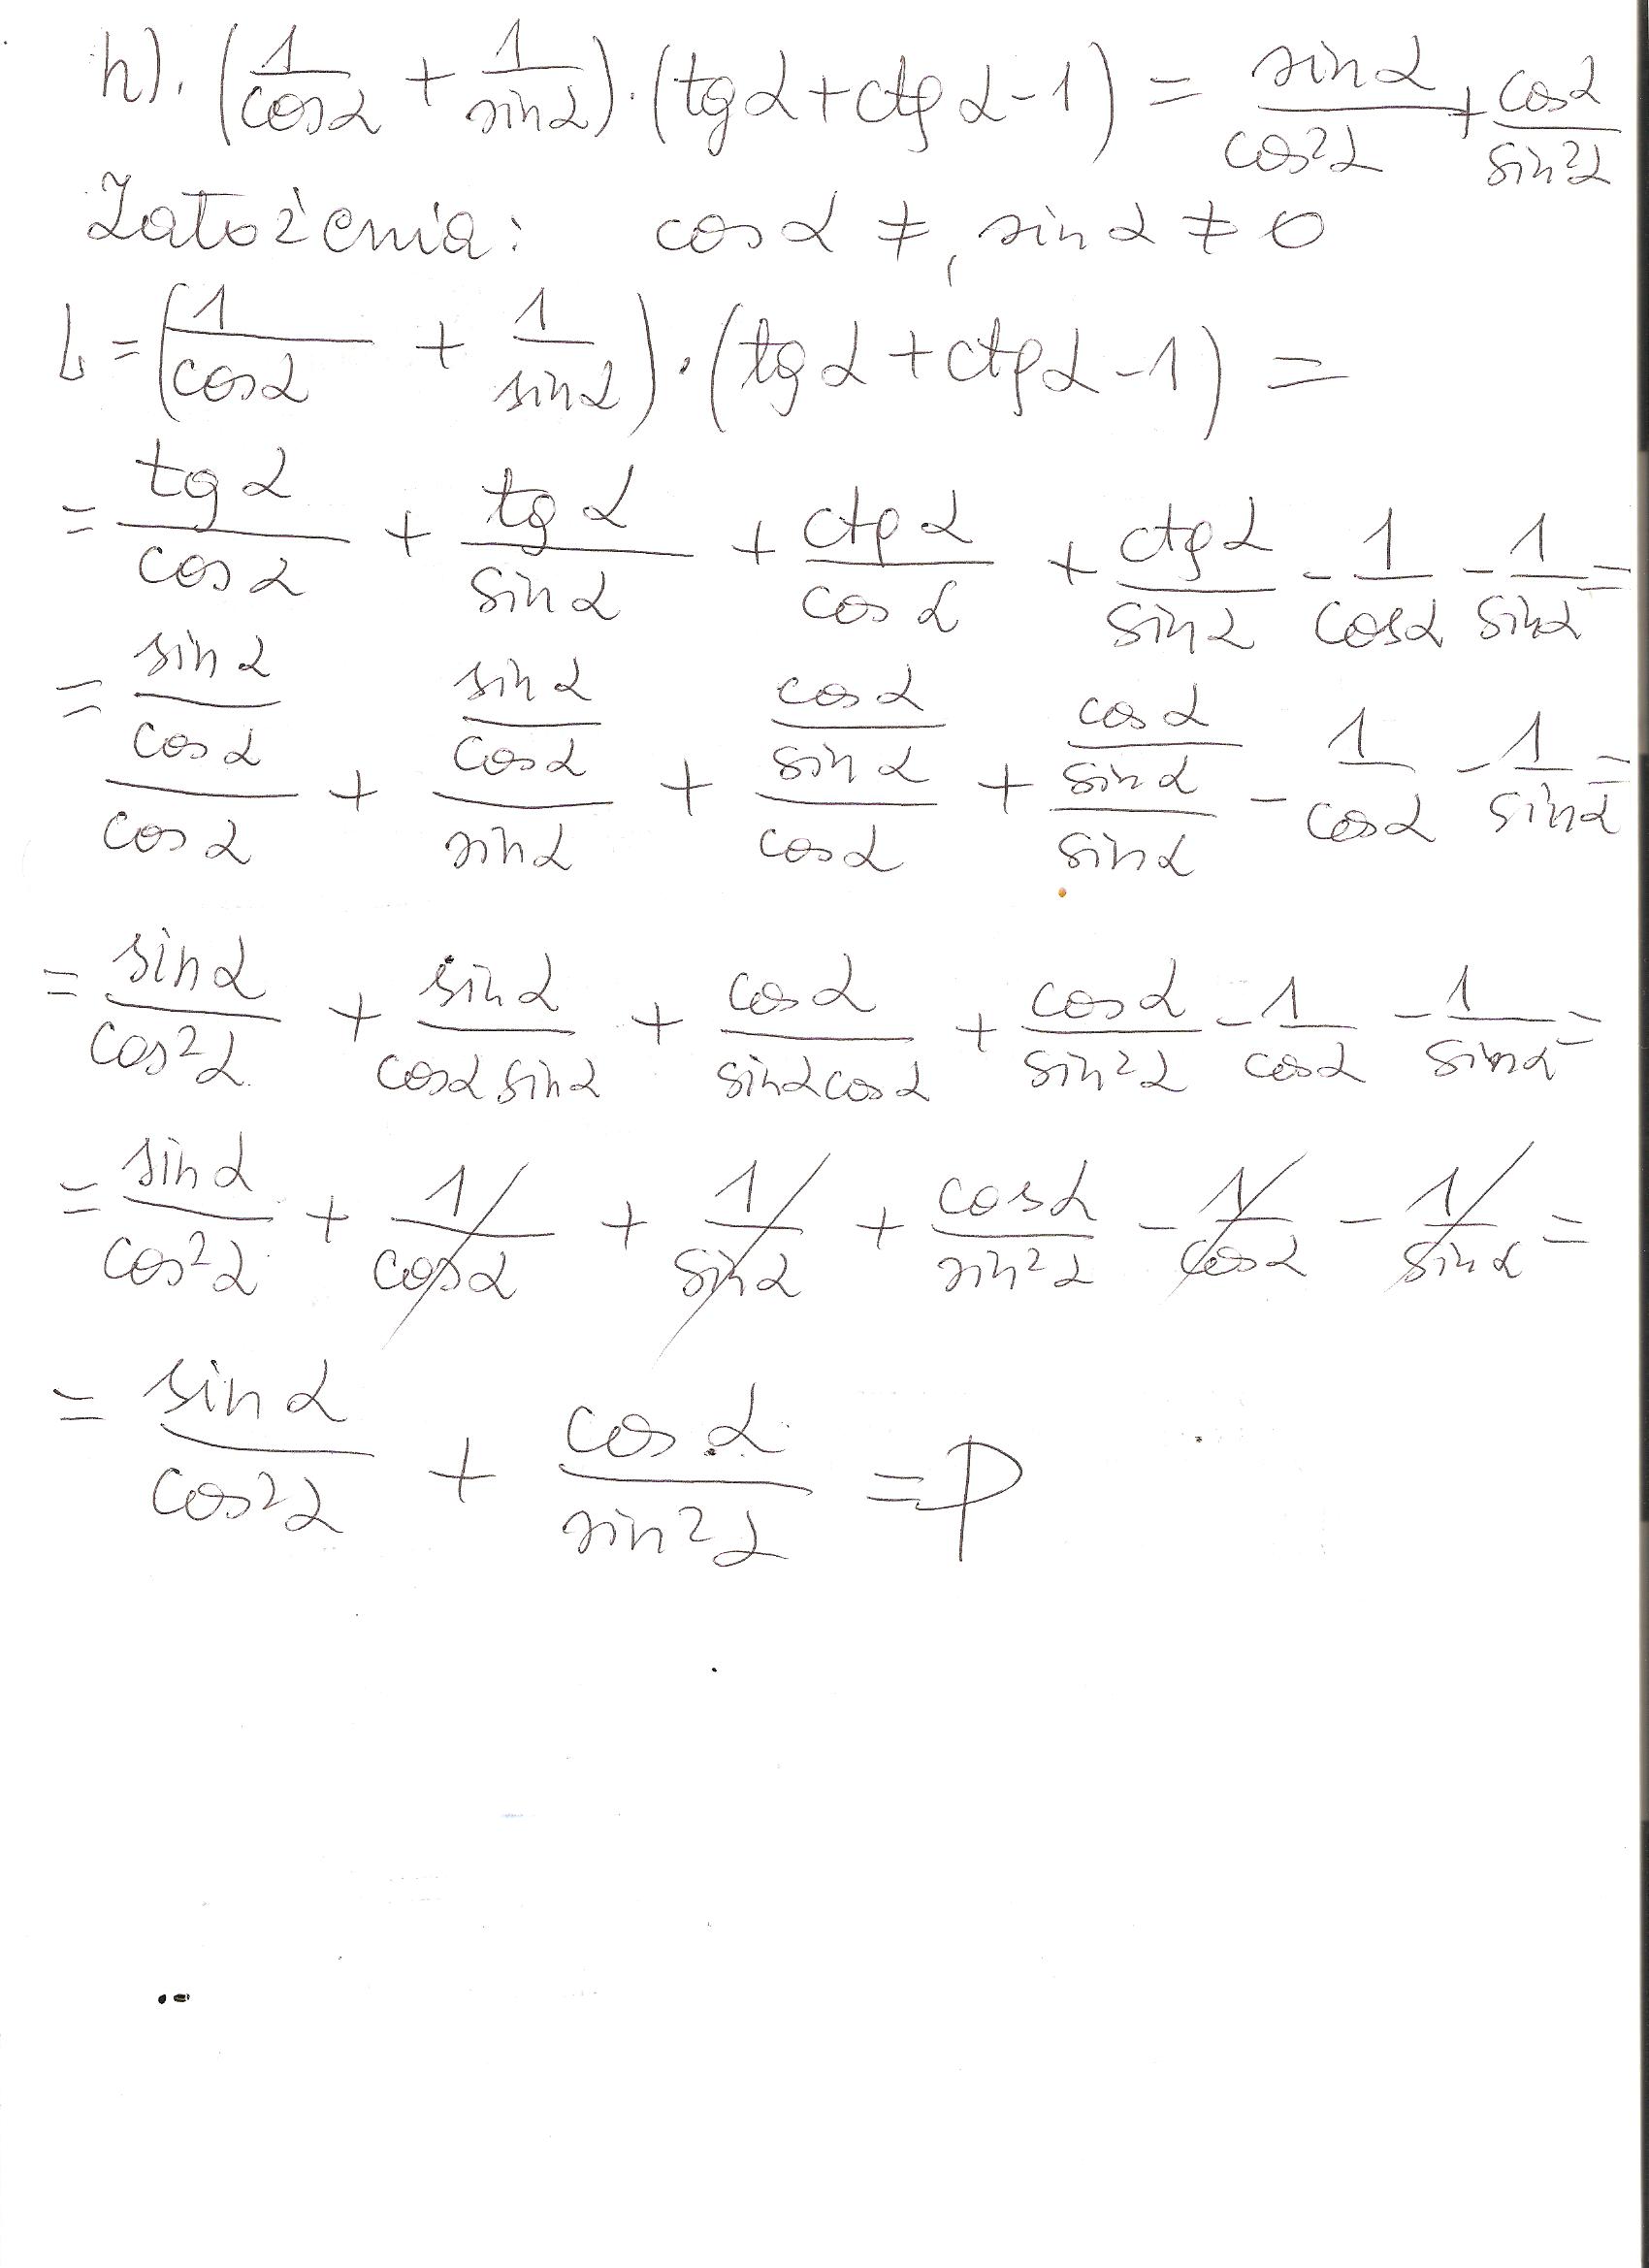 h). (1/cosα + 1/sinα)·(tgα+ctgα-1) = sinα/cos²α + cosα/sin²α
Założenia: cosα ≠, sinα ≠ 0
L = (1/cosα + 1/sinα)·(tgα+ctgα-1) =
= tgα/cosα + tgα/sinα + ctgα/cosα + ctgα/sinα - 1/cosα - 1/sinα =
= (sinα/cosα)/cosα + (sinα/cosα)/sinα + (cosα/sinα)/cosα + (cosα/sinα)/sinα - 1/cosα - 1/sinα =
= sinα/cos²α + sinα/(cosα sinα) + cosα/(sinα cosα) + cosα/sin²α - 1/cosα - 1/sinα =
= sinα/cos²α + 1/cosα + 1/sinα + cosα/sin²α - 1/cosα - 1/sinα =
= sinα/cos²α + cosα/sin²α = P